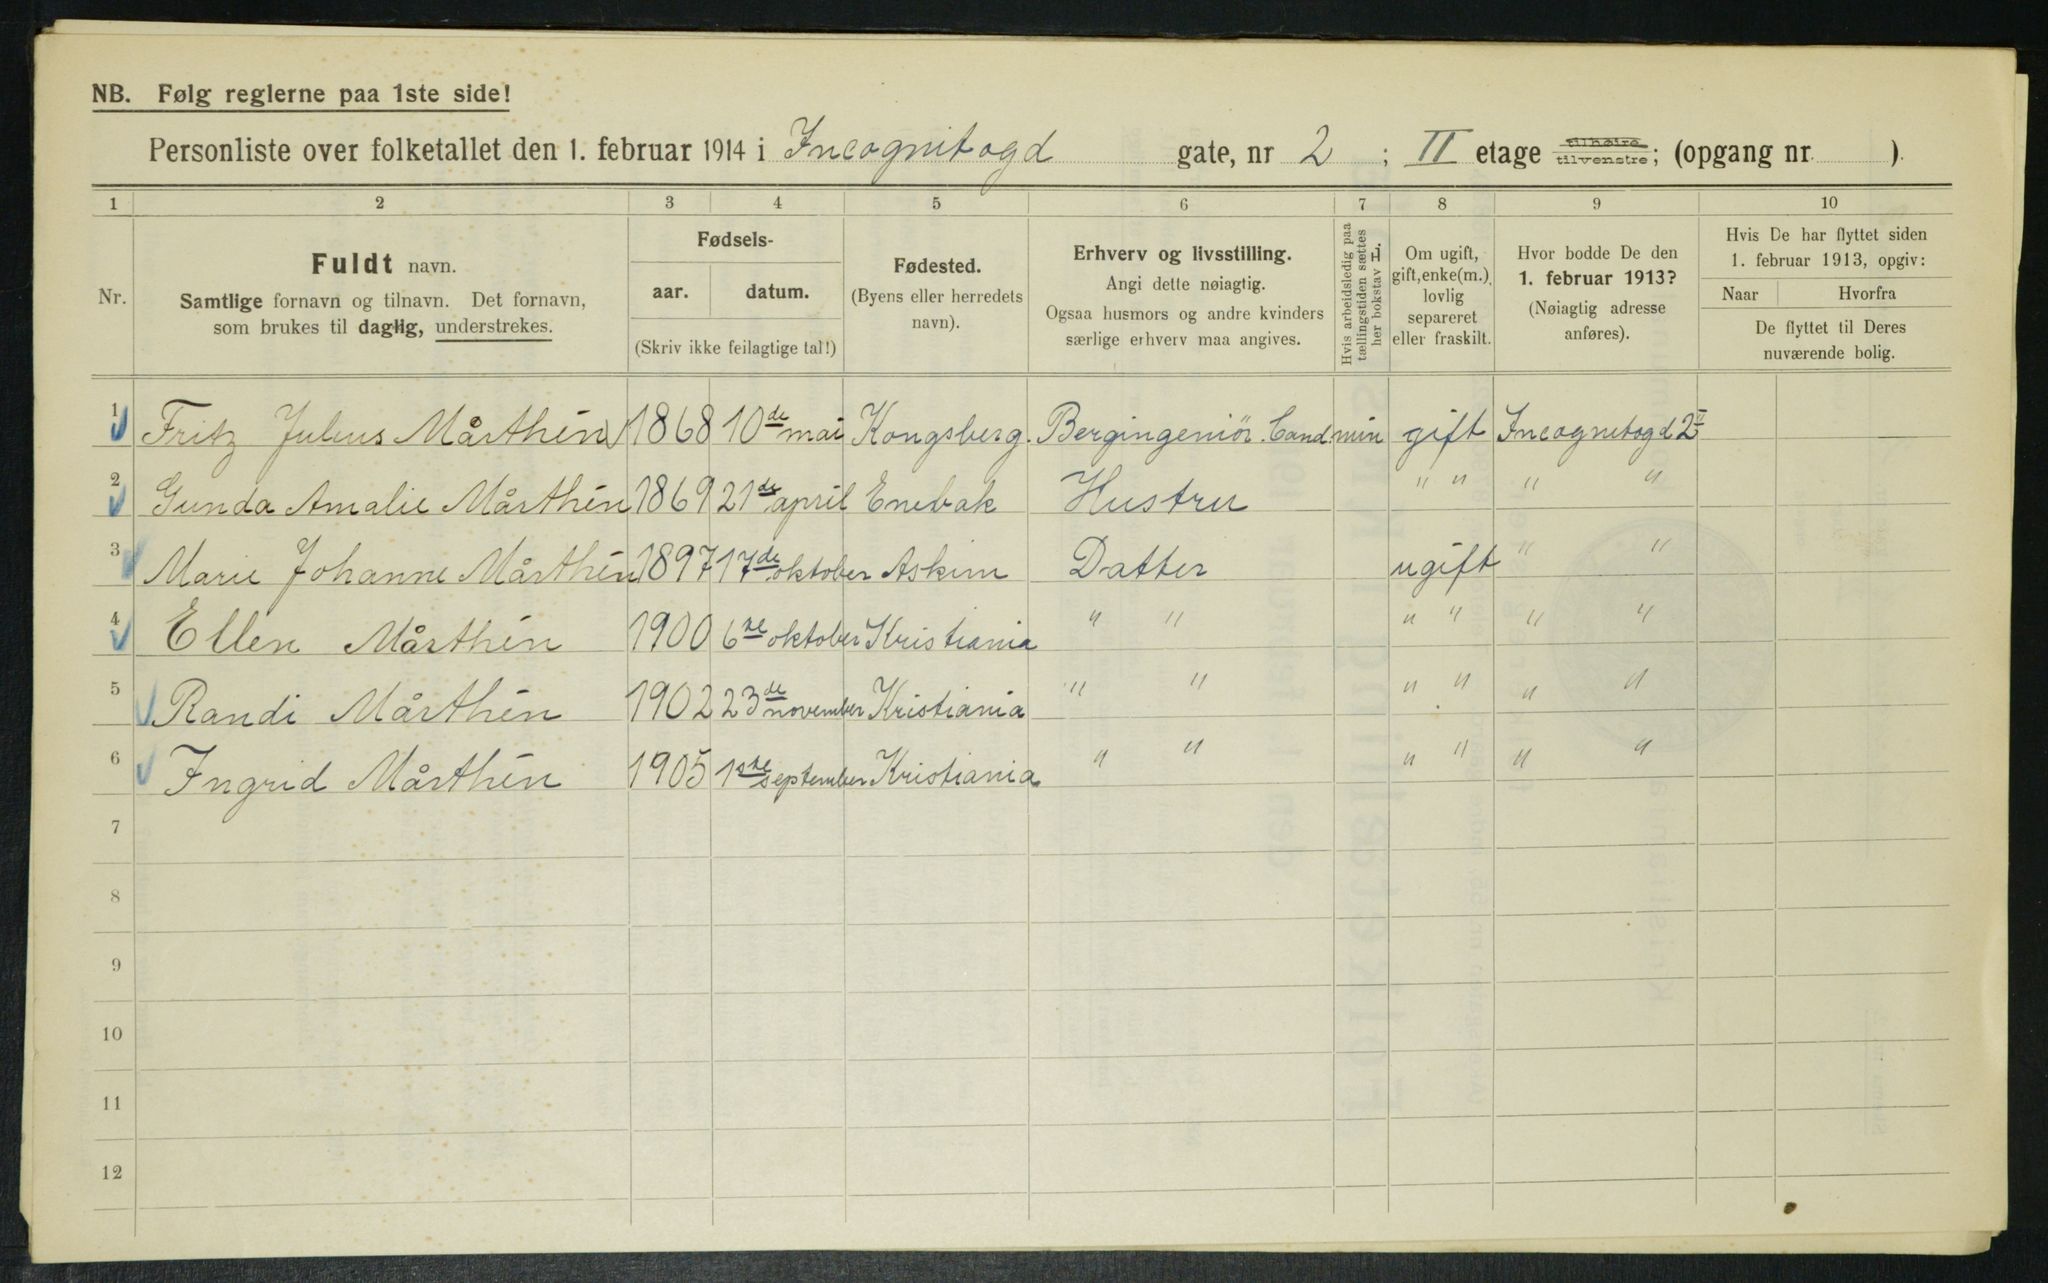 NB. Følg reglerne paa 1ste side!
Personliste over folketallet den 1. februar 1914 i Incognitogd gate, nr 2 ; II etage tilhøire tilvenstre; (opgang nr. ).
1 2 3 4 5 6 7 8 9 10
Nr.
Fuldt navn.
Samtlige fornavn og tilnavn. Det fornavn,
som brukes til daglig, understrekes.
Fødsels-
aar. datum.
(Skriv ikke feilagtige tal!)
Fødested.
(Byens eller herredets
navn).
Erhverv og livsstilling.
Angi dette nøiagtig.
Ogsaa husmors og andre kvinders
særlige erhverv maa angives.
Hvis arbeidsledig paa
tællingstiden sættes
her bokstav L.
Om ugift,
gift, enke(m.),
lovlig
separeret
eller fraskilt.
Hvor bodde De den
1. februar 1913?
(Nøiagtig adresse
anføres).
Hvis De har flyttet siden
1. februar 1913, opgiv:
Naar Hvorfra
De flyttet til Deres
nuværende bolig.
1 Fritz Julius Mårthén 1868 10de mai Kongsberg. Bergingeniör. Cand min gift Incognitogd 2 II
2 Gunda Amalie Mårthén 1869 21de april Enebak Hustru " " " "
3 Marie Johanne Mårthén 1897 17de oktober Askim Datter ugift " "
4 Ellen Mårthén 1900 6te oktober Kristiania " " " " " "
5 Randi Mårthén 1902 23de november Kristiania " " " " " "
6 Ingrid Mårthén 1905 1ste september Kristiania " " " " " "
7
8
9
10
11
12